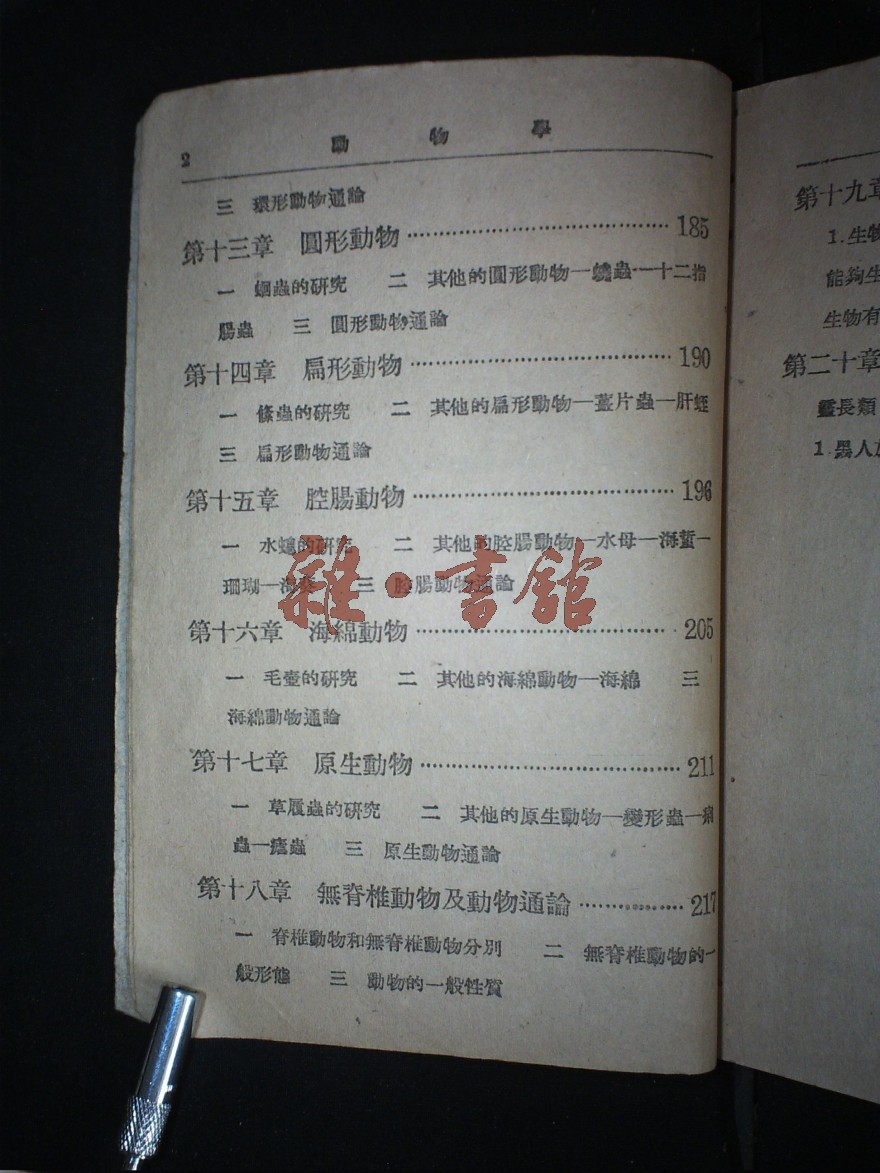 2 動物學
三 環形動物通論
第十三章 圓形動物 185
一 蛔蟲的研究 二 其他的圓形動物—蟯蟲—十二指
腸蟲 三 圓形動物通論
第十四章 扁形動物 190
一 絛蟲的研究 二 其他的扁形動物—薑片蟲—肝蛭
三 扁形動物通論
第十五章 腔腸動物 196
一 水螅的研究 二 其他的腔腸動物—水母—海蜇—
珊瑚—海葵 三 腔腸動物通論
第十六章 海綿動物 205
一 毛壺的研究 二 其他的海綿動物—海綿 三
海綿動物通論
第十七章 原生動物 211
一 草履蟲的研究 二 其他的原生動物—變形蟲—
蟲—瘧蟲 三 原生動物通論
第十八章 無脊椎動物及動物通論 217
一 脊椎動物和無脊椎動物分別 二 無脊椎動物的一
般形態 三 動物的一般性質
雜·書館
第十九章
1.生物
能夠生
生物有
第二十章
靈長類
1.愚人